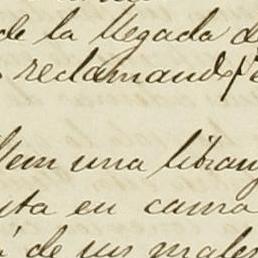 de la llegada d
reclamando
Item una libran
ta en cama
de sus males